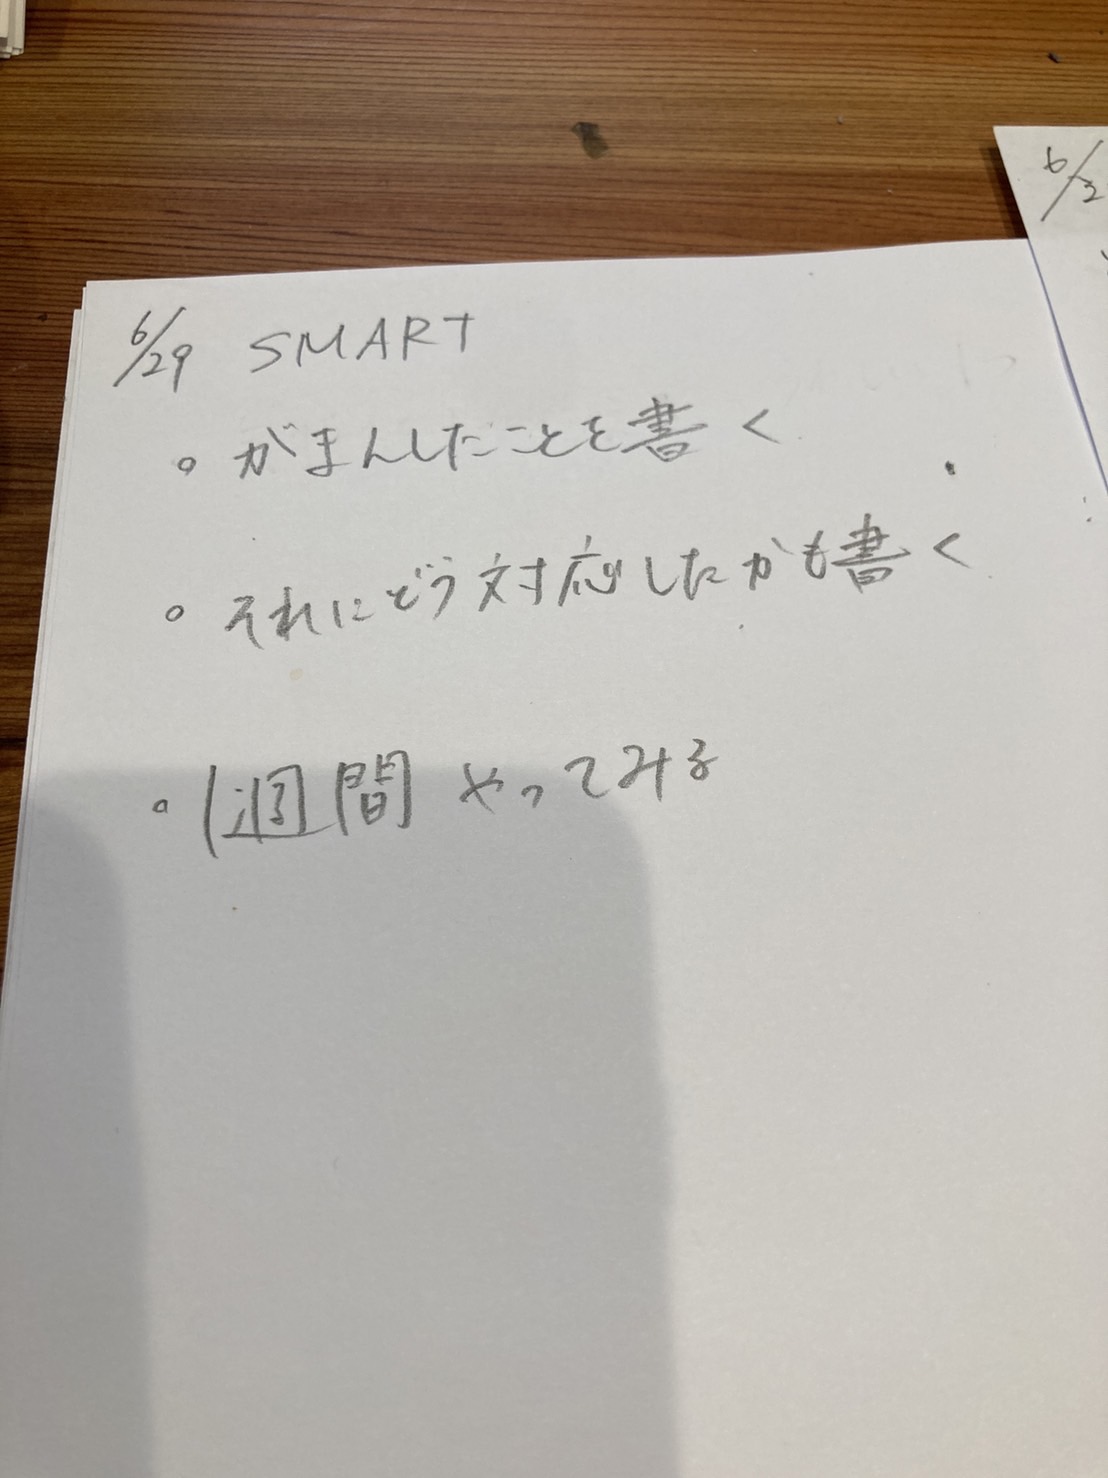 6/29 SMART
。がまんしたことを書く
。それにどう対応したかも書く
。1週間やってみる
6/2